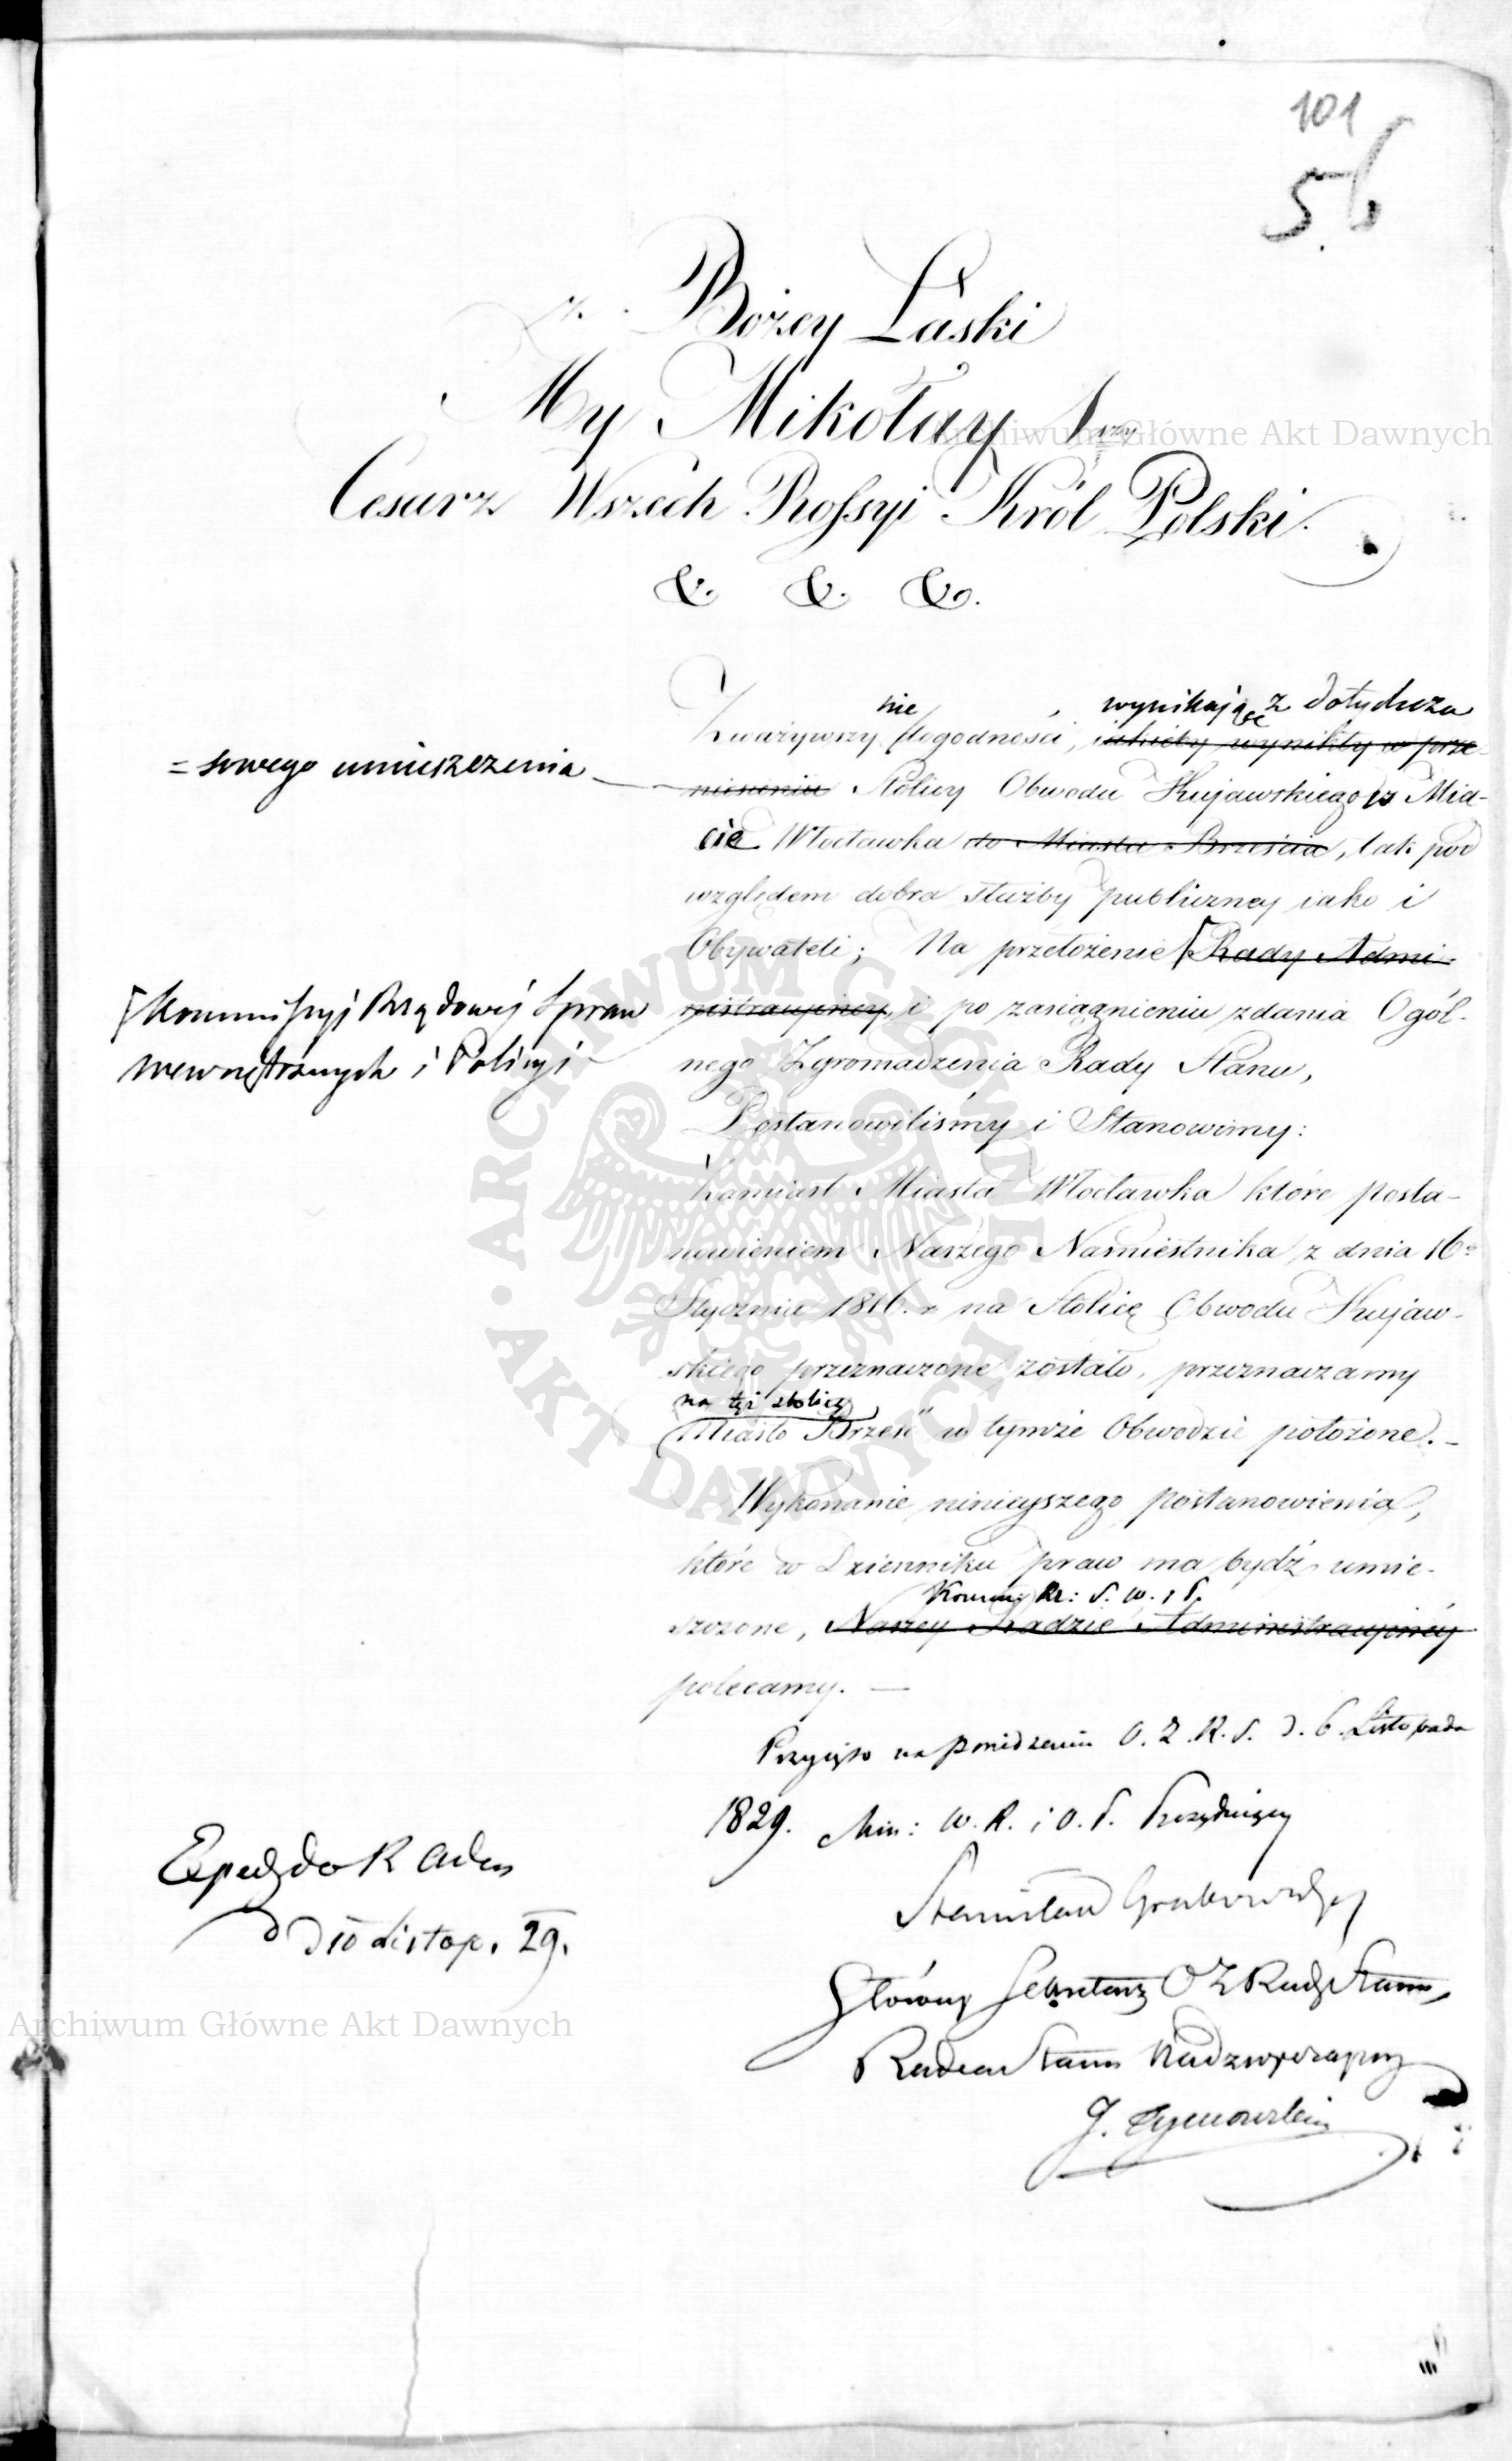 101
56
Z Bożey Łaski
My Mikołay I wszy
Cesarz Wszech Rossyi Król Polski.
&. &. &.
nie wynikające z dotychcza
Zważywszy dogodności, iakieby wynikły w prze-
= sowego umieszczenia
niesieniu Stolicy Obwodu Kujawskiego w Mia-
ście Włocławka do Miasta Brześcia, tak pod
względem dobra służby publiczney iako i
Obywateli; Na przełożenie Rady Admi-
[Kommissyi Rządowéj Spraw
wewnętrznych i Policyi
nistracyiney, i po zasiągnieniu zdania Ogól-
nego Zgromadzenia Rady Stanu,
Postanowiliśmy i Stanowimy:
Zamiast Miasta Włocławka które posta-
nowieniem Naszego Namiestnika z dnia 16o
Stycznia 1816. r na Stolicę Obwodu Kujaw-
skiego przeznaczone zostało, przeznaczamy
na téż stolicę
Miasto Brześć w tymże Obwodzie położone. –
Wykonanie ninieyszego postanowienia,
które w Dzienniku praw ma bydź umie-
Komm: Rz: S. W. i P.
szczone, Naszey Radzie Administracyinéy
polecamy. —
Przyięto na posiedzeniu O. Z. R. S. d. 6. Listopada
1829. Min: W. R. i O. P. Prezyduiący
Stanisław Grabowski
Exped do R Adm
d 10 Listop. 29.
Główny Sekretarz O Z Rady Stanu,
Radca Stanu Nadzwyczayny
J. Tymowski
Archiwum Główne Akt Dawnych
Archiwum Główne Akt Dawnych
ARCHIWUM GŁÓWNE AKT DAWNYCH